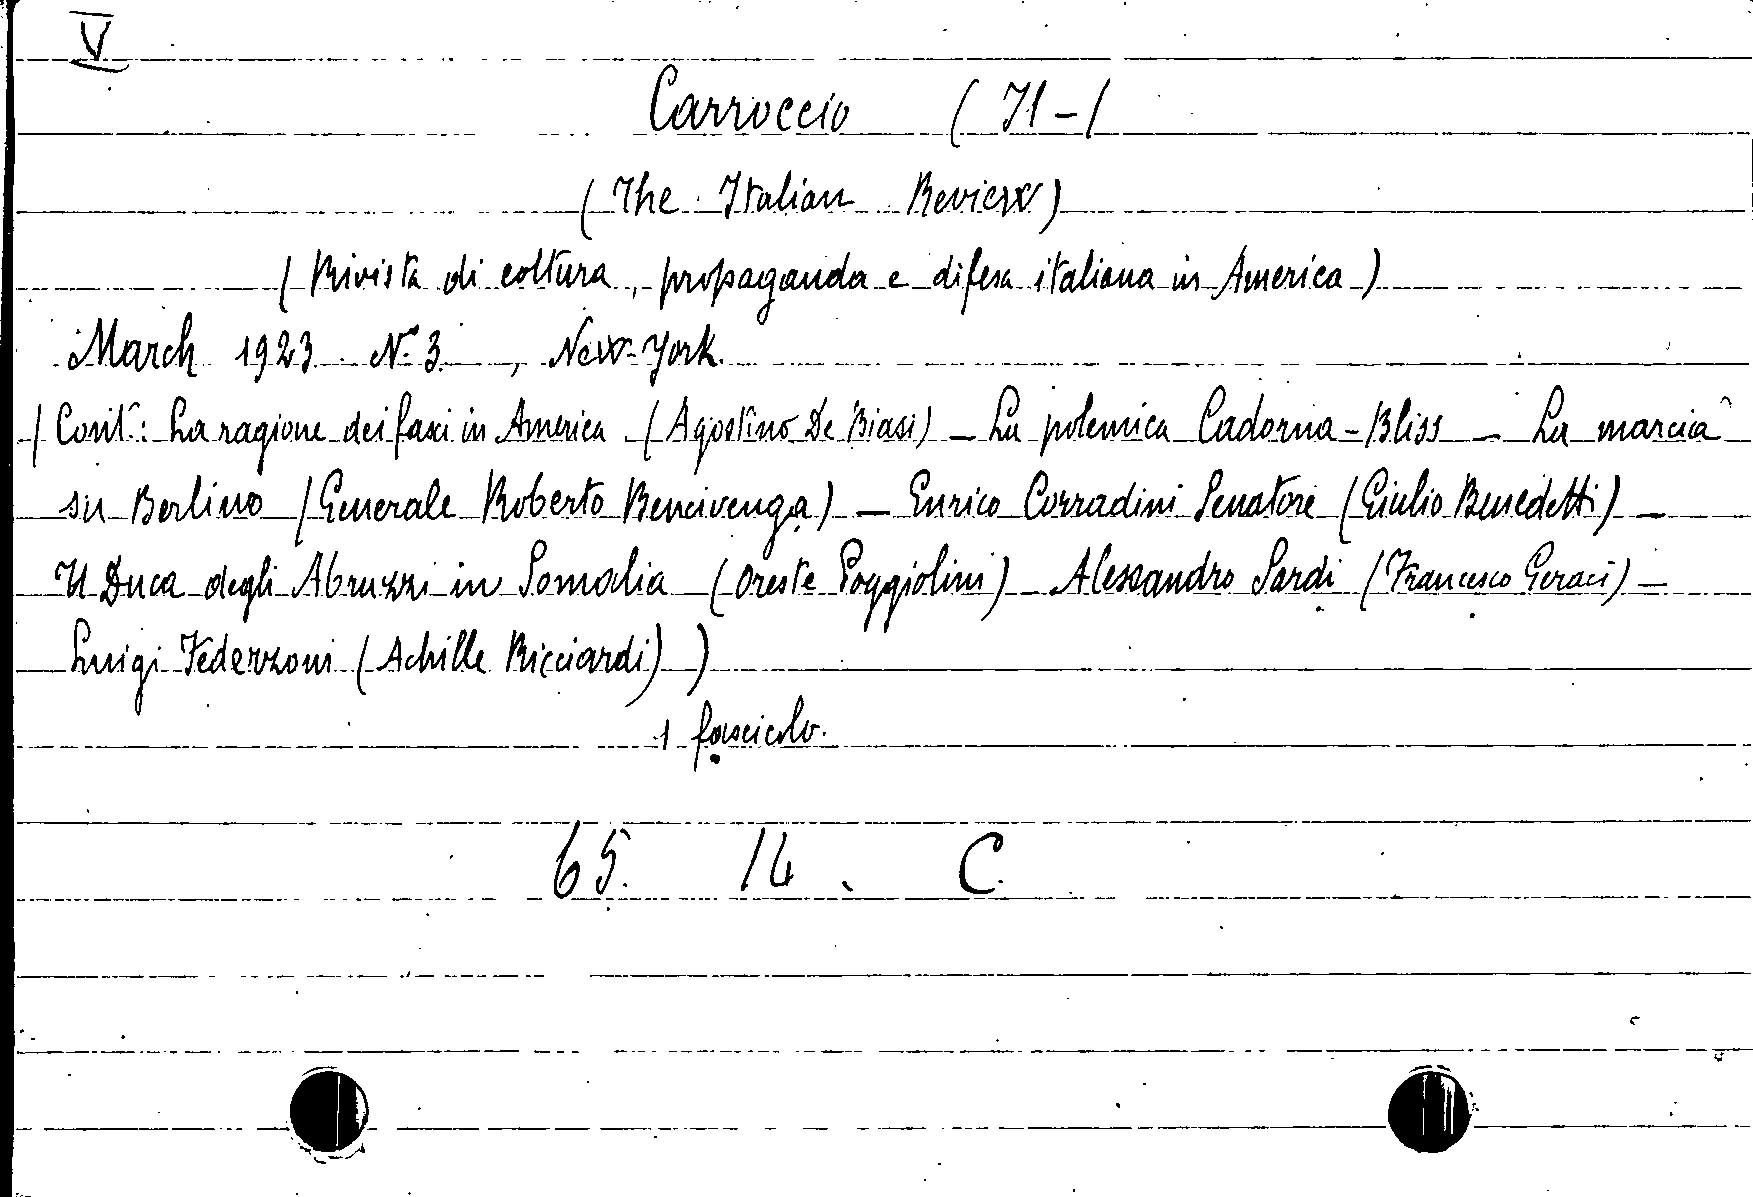 V
Carroccio (Il-)
(The Italian Review)
(Rivista di coltura, propaganda e difesa italiana in America)
March 1923 N. 3, New-York.
(Cont.: La ragione dei fasci in America (Agostino De Biasi) - La polemica Cadorna-Bliss - La marcia
su Berlino (Generale Roberto Bencivenga) - Enrico Corradini Senatore (Giulio Benedetti) -
Il Duca degli Abruzzi in Somalia (Oreste Poggiolini) Alessandro Sardi (Francesco Geraci) -
Luigi Federzoni (Achille Ricciardi))
1 fascicolo.
65. 14. C.